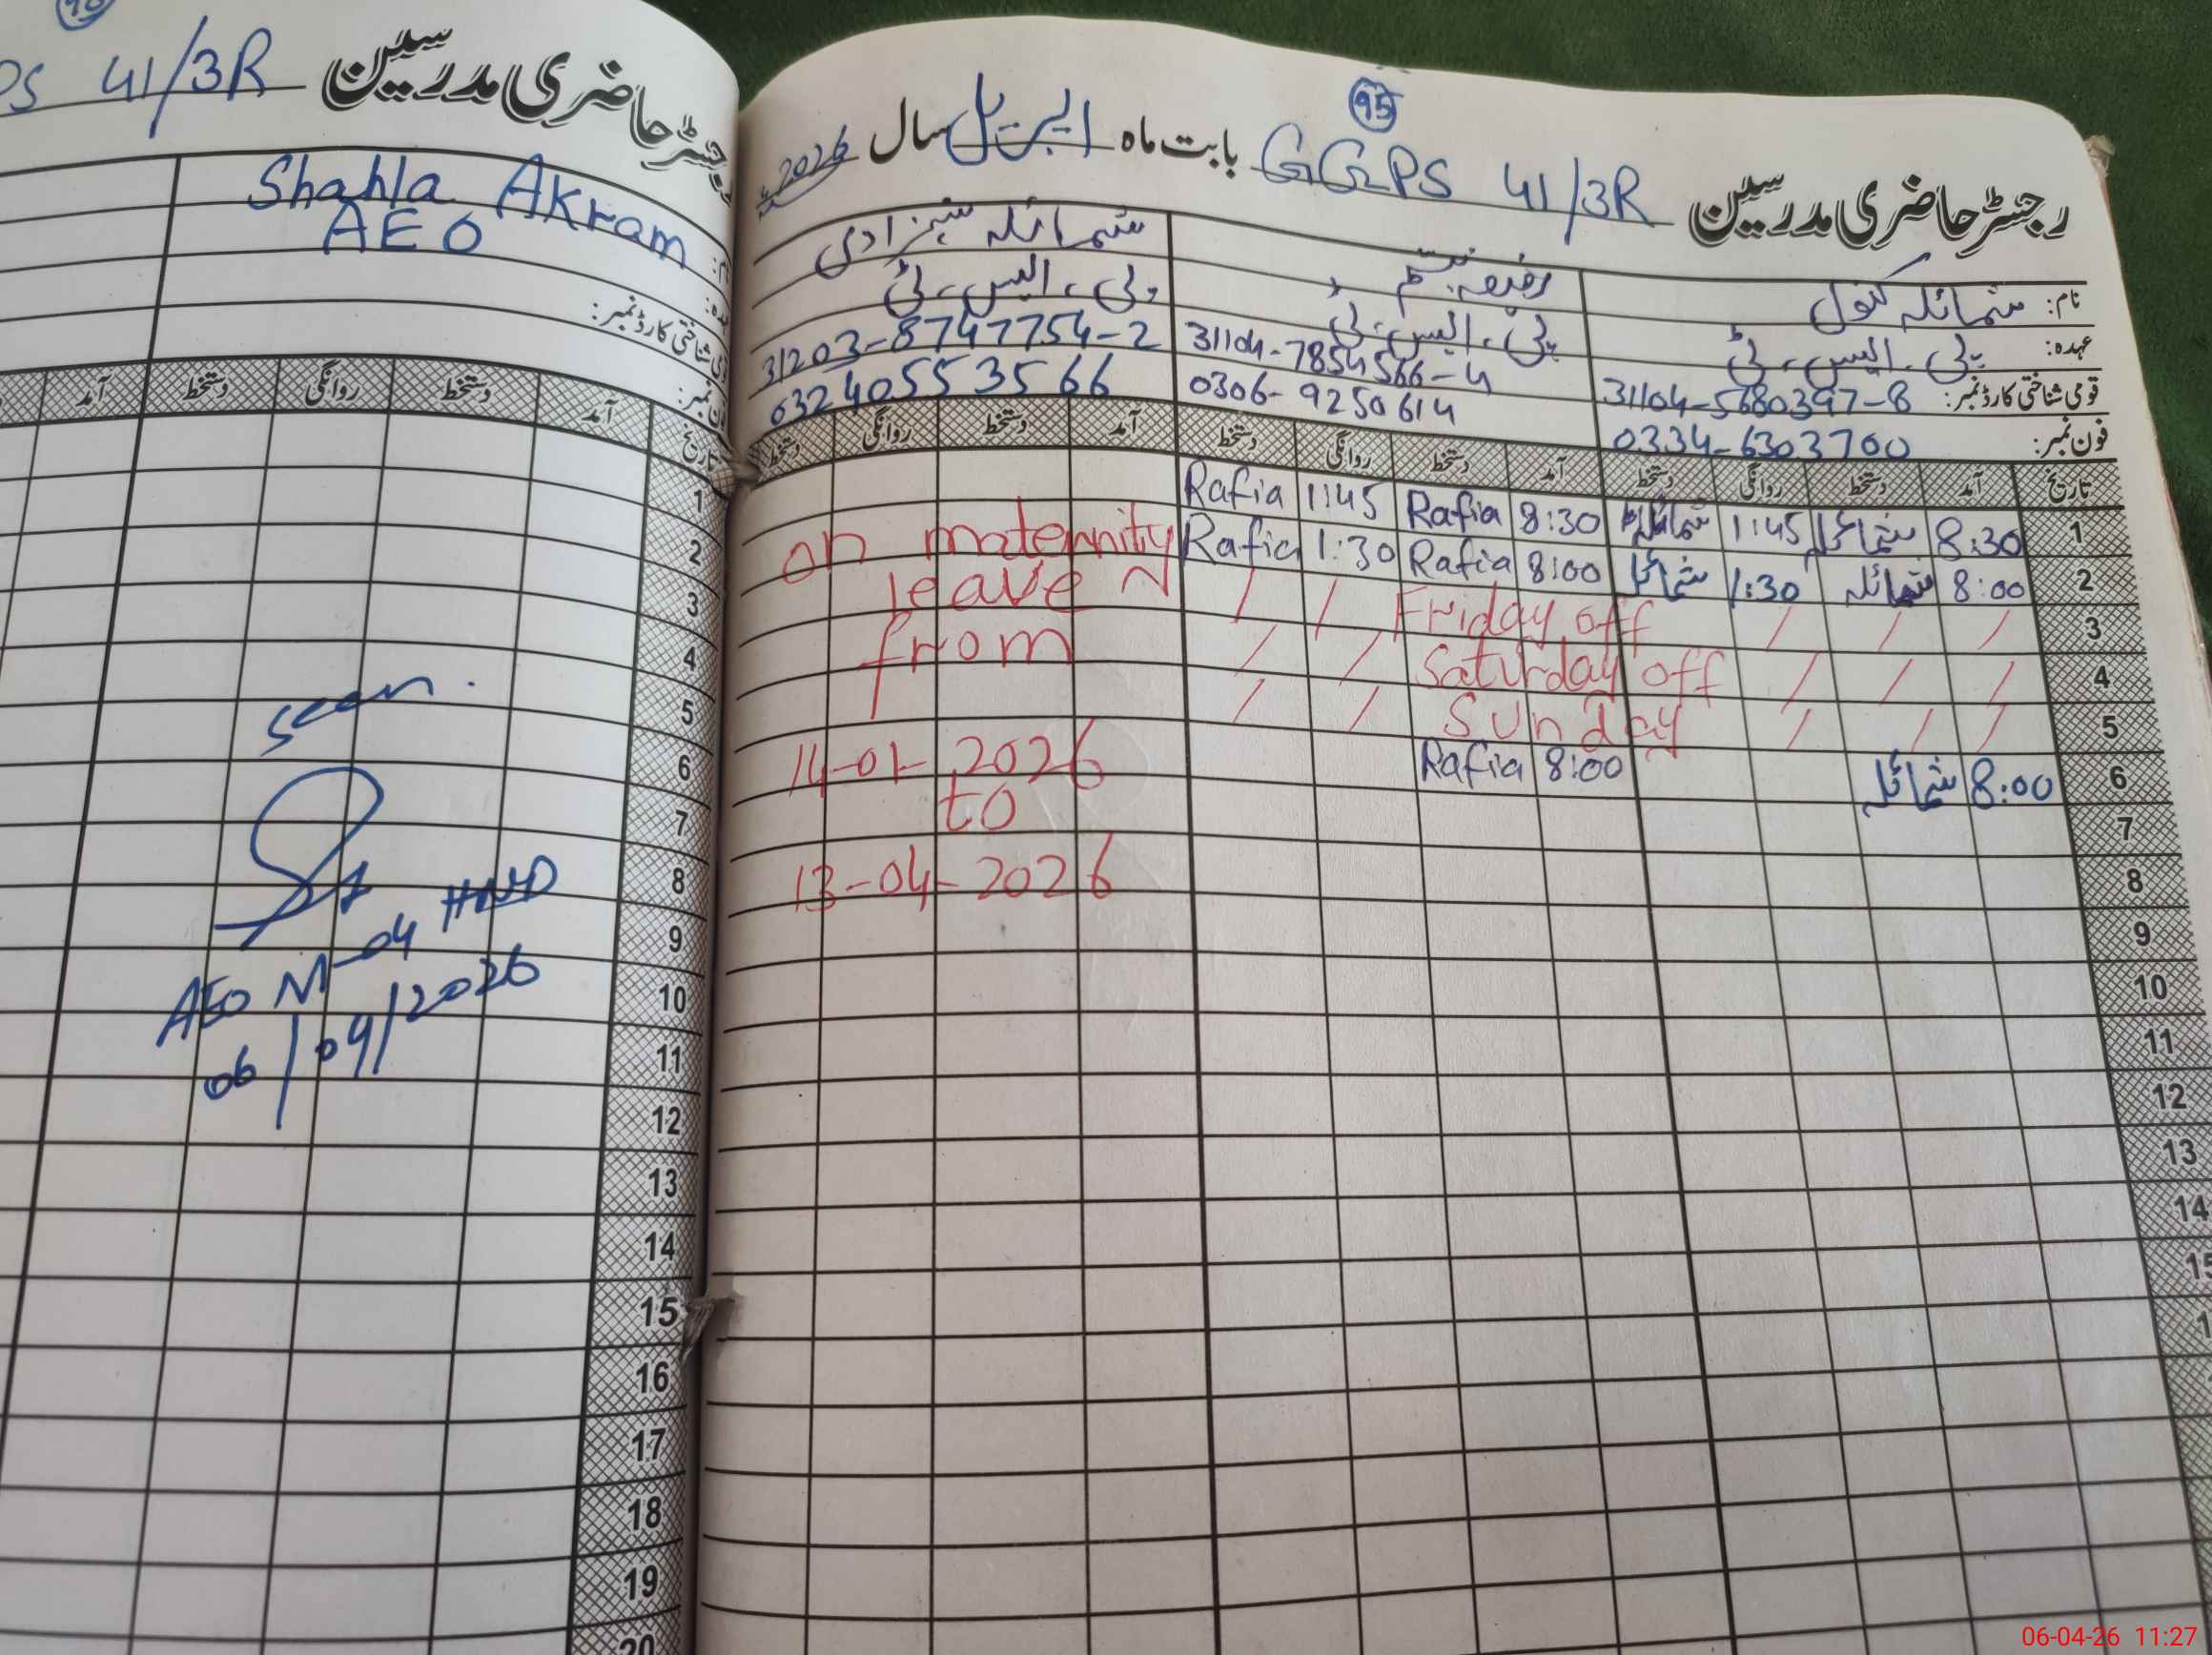 PS 41/3R رجسٹر حاضری مدرسین
Shahla Akram
AEO
شناختی کارڈ نمبر:
آمد دستخط روانگی دستخط آمد تاریخ
1
2
3
4
5
6
7
8
9
10
11
12
13
14
15
16
17
18
19
20
seen.
AEO M-04 HND
06/04/2026
95
رجسٹر حاضری مدرسین GGPS 41/3R بابت ماہ اپریل سال 2026
نام: شمائلہ کنول
رفیعہ
شمائلہ شہزادی
عہدہ: پی، ایس، ٹی
پی، ایس، ٹی
پی، ایس، ٹی
قومی شناختی کارڈ نمبر: 31104-5680397-8
31104-7854566-4
31203-8747754-2
فون نمبر: 0334-6303700
0306-9250614
03240553566
تاریخ آمد دستخط روانگی دستخط آمد دستخط روانگی دستخط آمد دستخط روانگی دستخط
1 8:30 شمائلہ 1:45 شمائلہ 8:30 Rafia 1:45 Rafia
2 8:00 شمائلہ 1:30 شمائلہ 8:00 Rafia 1:30 Rafia
3 / / / Friday off / /
4 / / / Saturday off / /
5 / / / Sunday / /
6 8:00 شمائلہ 8:00 Rafia
7
8
9
10
11
12
13
14
15
on maternity
leave
from
14-01-2026
to
13-04-2026
06-04-26 11:27